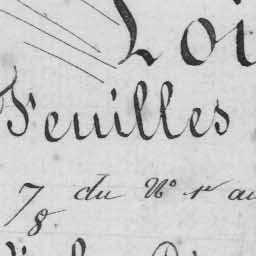 Loi
Feuilles
7/8 du N° 1er au